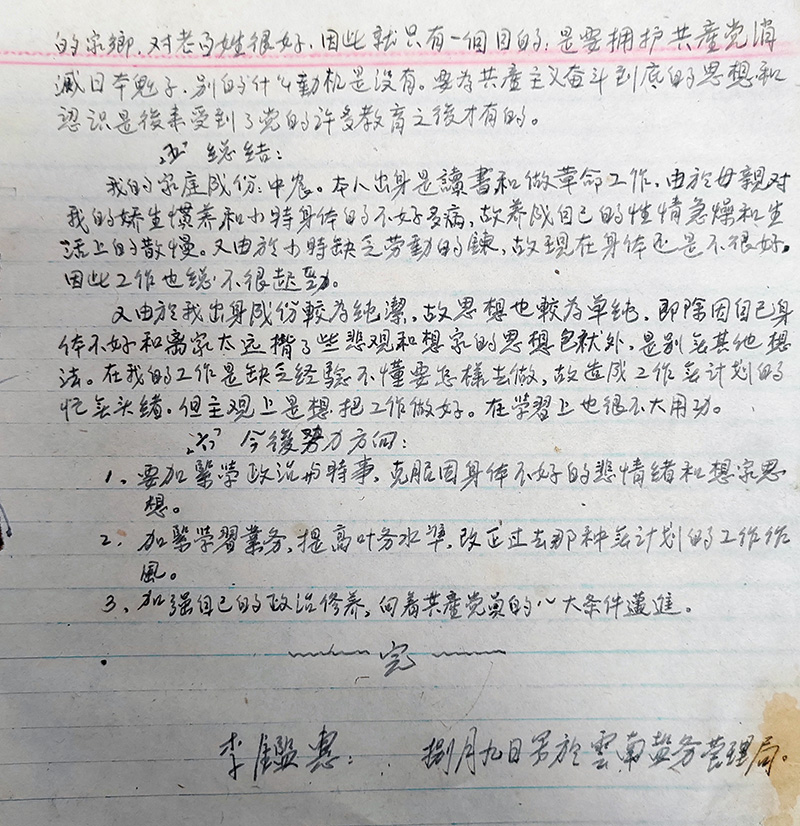 的家鄉，对老百姓很好，因此就只有一個目的：是要拥护共產党消
滅日本鬼子，别的什么動机是没有。要为共產主义奋斗到底的思想和
認識是後来受到了党的许多教育之後才有的。
五 总结：
我的家庭成份：中农。本人出身是讀書和做革命工作，由於母親对
我的嬌生慣养和小時身体的不好多病，故养成自己的性情急燥和生
活上的散慢。又由於小時缺乏劳動的鍊，故現在身体还是不很好。
因此工作也总不很起劲。
又由於我出身成份較为纯潔，故思想也較为单纯，即除因自己身
体不好和离家太远揹了些悲观和想家的思想包袱外，是别無其他想
法。在我的工作是缺乏经驗不懂要怎樣去做，故造成工作無计划的
忙無头绪。但主观上是想把工作做好。在学習上也很不大用功。
六 今後努力方向：
1、要加緊學政治与時事，克服因身体不好的悲情绪和想家思
想。
2、加緊学習業务，提高叶务水準，改正过去那种無计划的工作作
風。
3、加强自己的政治修养，向着共產党員的八大条件邁進。
完
李鑑惠： 捌月九日写於雲南盐务管理局。